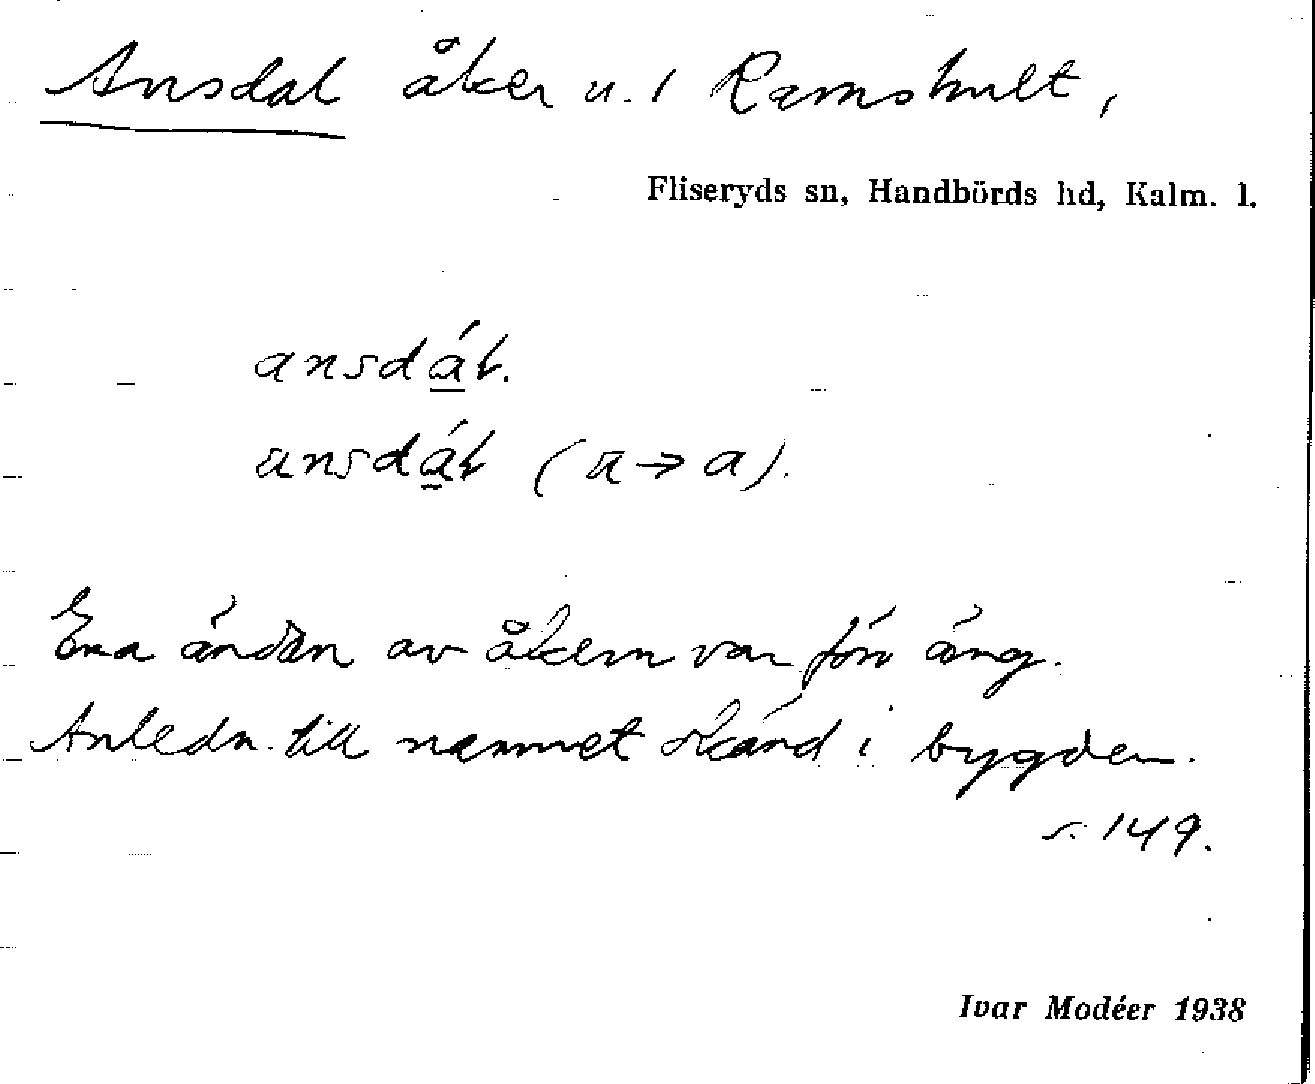 Ansdal åker u. 1 Ramshult,
Fliseryds sn, Handbörds hd, Kalm. l.
ansdál.
ansdál (a → a).
Ena ändan av åkern var förr äng.
Anledn. till namnet okänd i bygden.
s. 149.
Ivar Modéer 1938